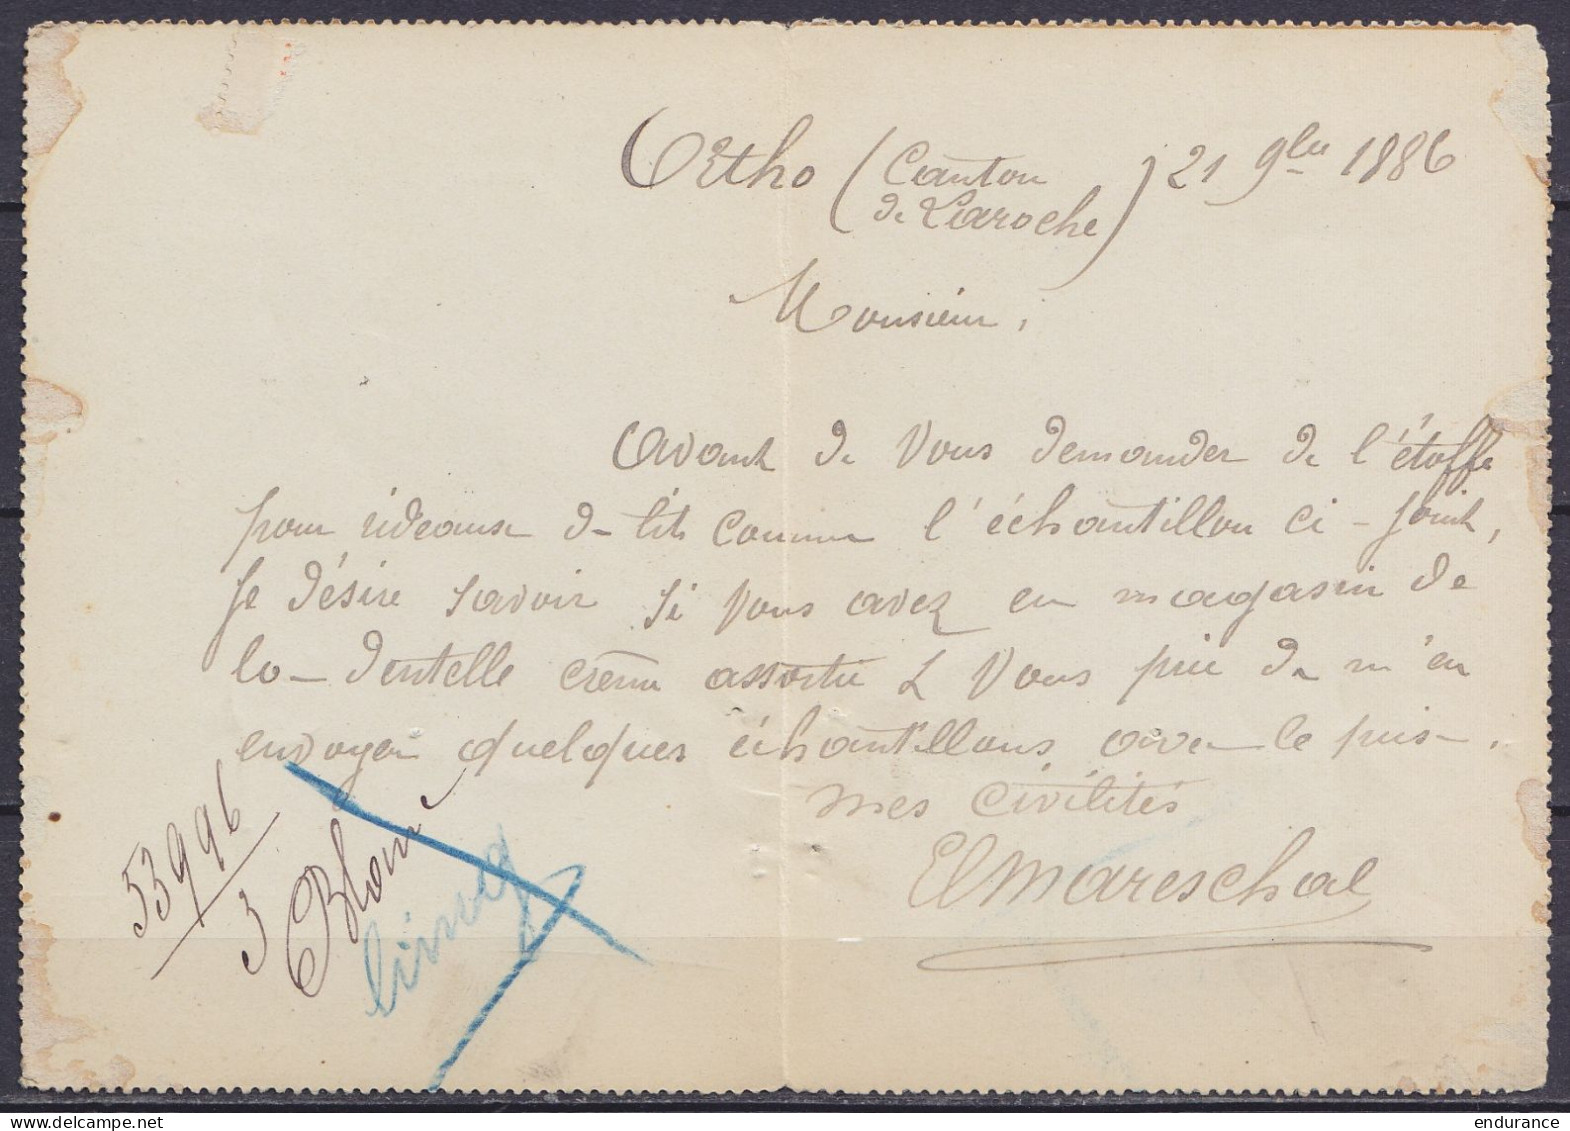 Ortho (Canton
de Laroche) 21 9bre 1886
Monsieur,
Avant de vous demander de l'étoffe
pour rideaux de lits comme l'échantillon ci-joint,
je désire savoir si vous avez en magasin de
la dentelle crême assortie & vous prie de m'en
envoyer quelques échantillons, avec le prix.
mes civilités
El Mareschal
53996
3
Blanc
endurance